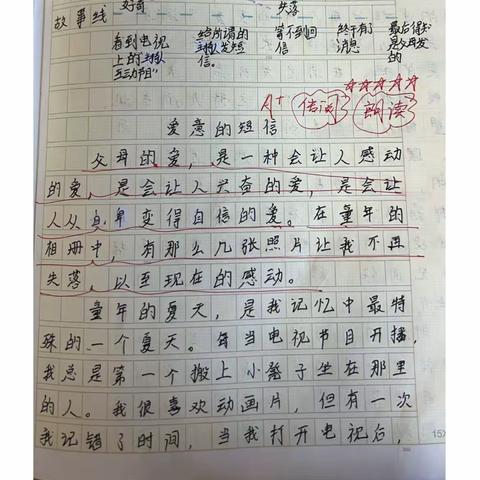 故事线 好奇 失落
看到电视上的"互动 给所谓的发短信。 等不到回信 终于有了消息 最后得知是父母发的
A+ 佳词 朗读
爱意的短信
父母的爱,是一种会让人感动
的爱,是会让人兴奋的爱,是会让
人从自卑变得自信的爱。在童年的
相册中,有那么几张照片让我不再
失落,以至现在的感动。
童年的夏天,是我记忆中最特
殊的一个夏天。每当电视节目开播,
我总是第一个搬上小凳子坐在那里
的人。我很喜欢动画片,但有一次
我记错了时间,当我打开电视后,